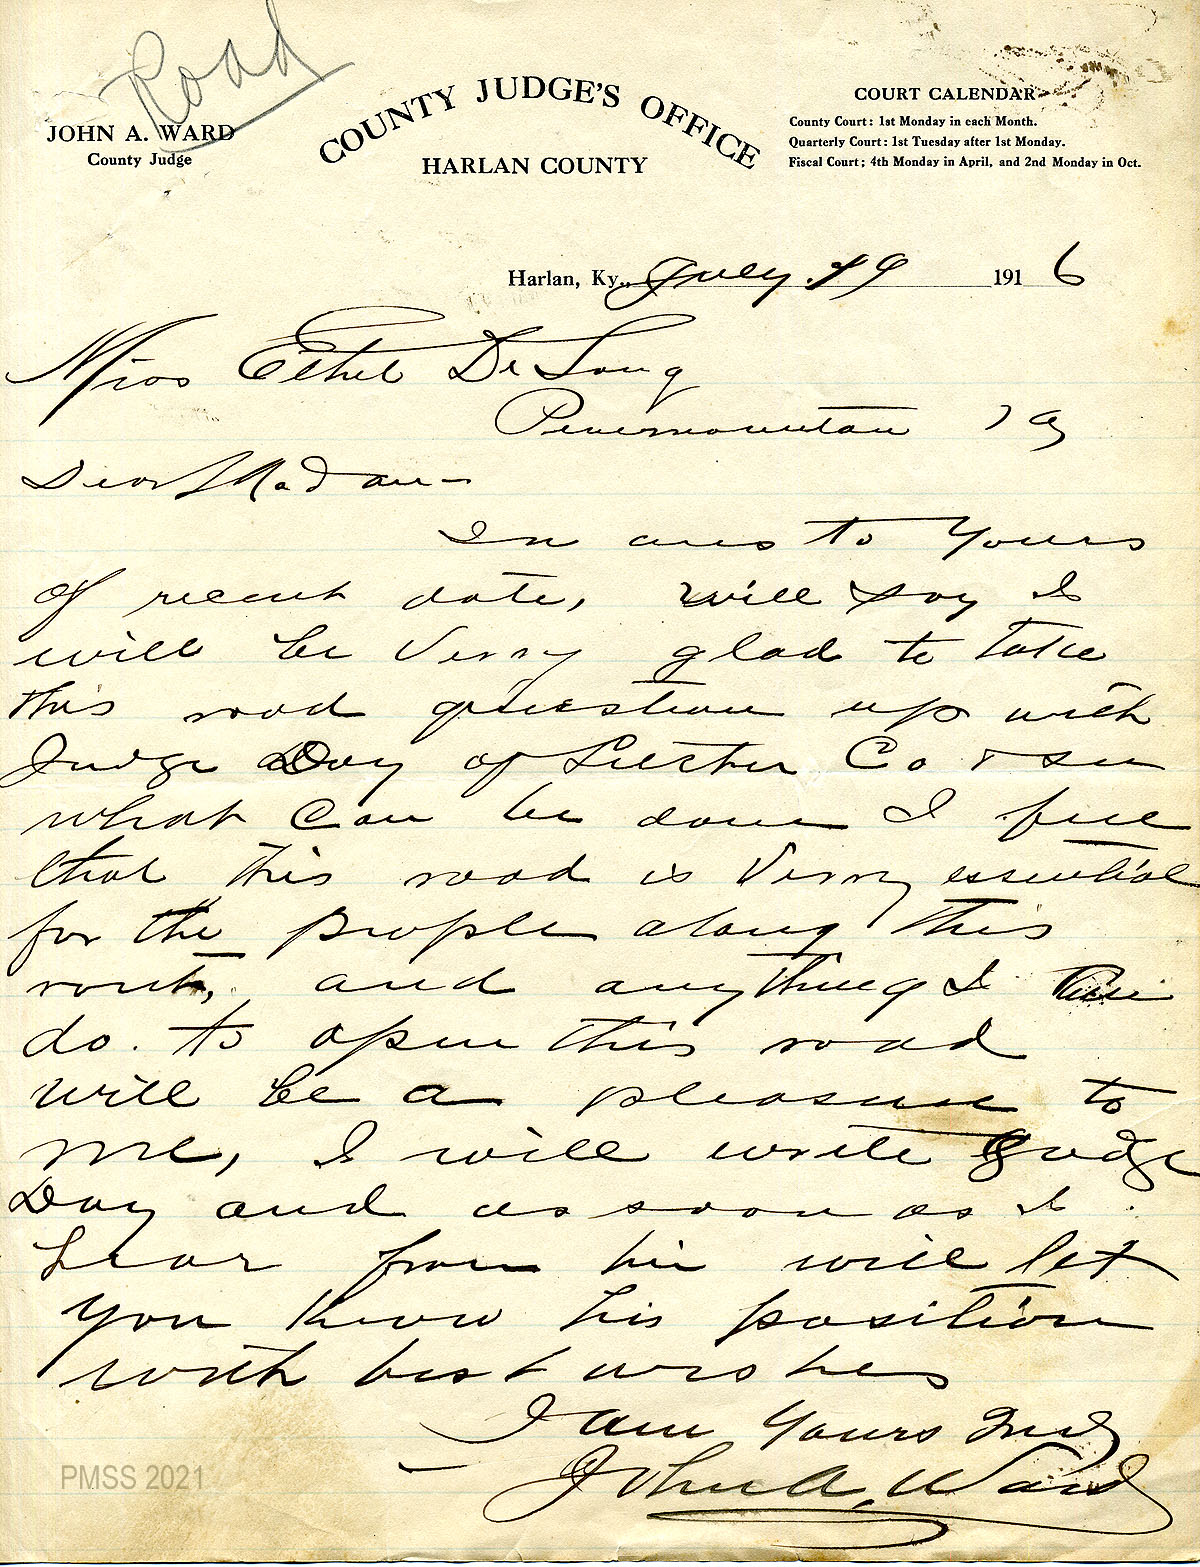 Road
JOHN A. WARD
County Judge
COUNTY JUDGE'S OFFICE
HARLAN COUNTY
COURT CALENDAR
County Court: 1st Monday in each Month.
Quarterly Court: 1st Tuesday after 1st Monday.
Fiscal Court; 4th Monday in April, and 2nd Monday in Oct.
Harlan, Ky., July 19 1916
Miss Ethel De Long
Pinemountain Ky
Dear Madam -
In ans to Yours
of recent date, will say I
will be Verry glad to take
this road question up with
Judge Day of Letcher Co & see
what Can be done I feel
that this road is Verry essential
for the people along this
rout, and anything I Can
do. to open this road
will be a pleasure to
me, I will write Judge
Day and as soon as I
hear from him will let
you know his position
with best wishes
I am Yours
John A. Ward
PMSS 2021